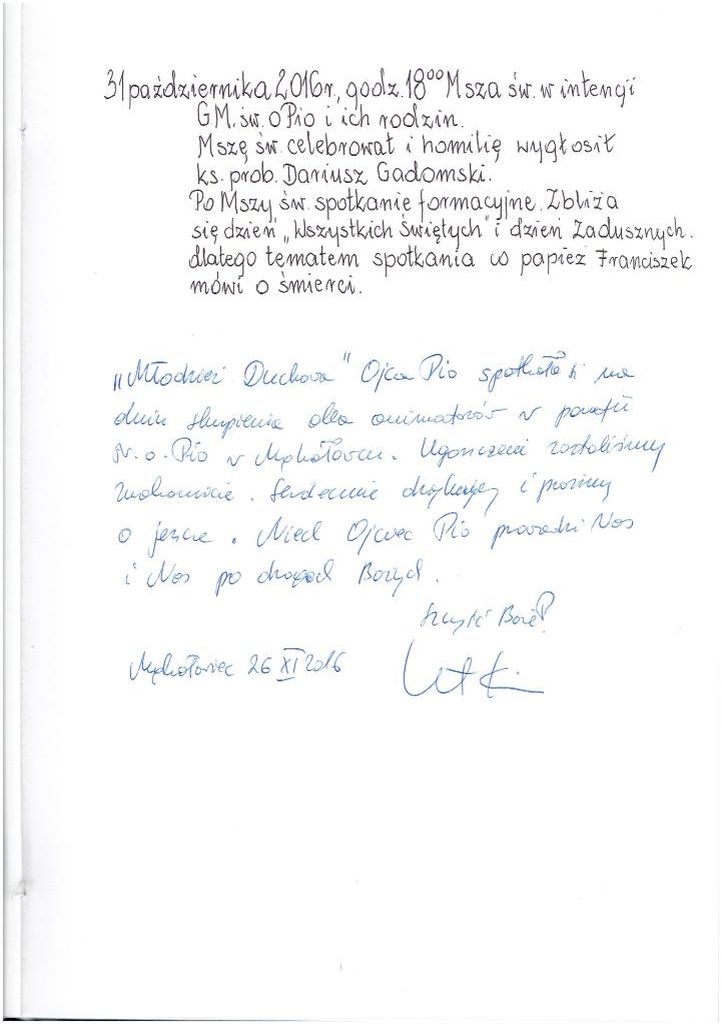 31 października 2016r., godz. 18⁰⁰ Msza św. w intencji
GM. św. o Pio i ich rodzin.
Mszę św. celebrował i homilię wygłosił
ks. prob. Dariusz Gadomski.
Po Mszy św. spotkanie formacyjne. Zbliża
się dzień „Wszystkich Świętych" i dzień Zadusznych.
dlatego tematem spotkania co papież Franciszek
mówi o śmierci.
„Młodzież Duchowa" Ojca Pio spotkała się na
dniu skupienia dla animatorów w parafii
św. o. Pio w Mąkołowcu. Ugoszczeni zostaliśmy
znakomicie. Serdecznie dziękujemy i prosimy
o jeszcze. Niech Ojciec Pio prowadzi Nas
i Nas po drogach Bożych.
Szczęść Boże!
26 XI 2016